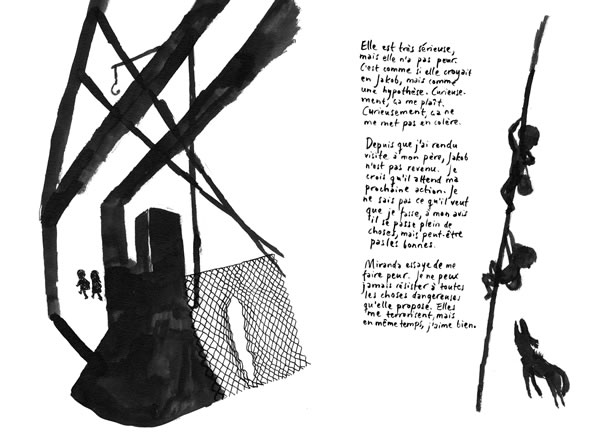 Elle est très sérieuse,
mais elle n'a pas peur.
C'est comme si elle croyait
en Jakob, mais comme
une hypothèse. Curieuse-
ment, ça me plaît.
Curieusement, ça ne
me met pas en colère.
Depuis que j'ai rendu
visite à mon père, Jakob
n'est pas revenu. Je
crois qu'il attend ma
prochaine action. Je
ne sais pas ce qu'il veut
que je fasse, à mon avis
il se passe plein de
choses, mais peut-être
pas les bonnes.
Miranda essaye de me
faire peur. Je ne peux
jamais résister à toutes
les choses dangereuses
qu'elle propose. Elles
me terrorisent, mais
en même temps, j'aime bien.